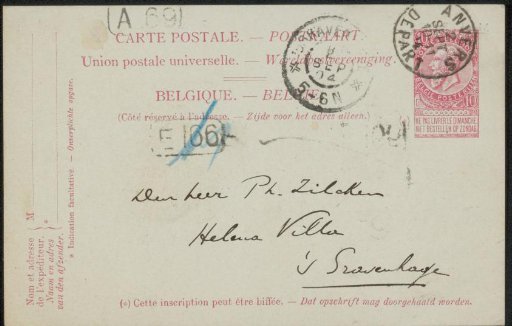 (A 69)
CARTE POSTALE. — POSTKAART
Union postale universelle. — Wereldpostvereeniging.
BELGIQUE. — BELGIË
(Côté réservé à l'adresse. — Zijde voor het adres alleen.)
'S GRAVENHAGE
8
SEP
04
5-6N
ANVERS
DEPART
BELGIE POSTES BELGIQUE
10
NE PAS LIVRER LE DIMANCHE
NIET BESTELLEN OP ZONDAG
E 66
Den heer Ph. Zilcken
Helena Villa
's Gravenhage
M
Nom et adresse
de l'expéditeur.
Naam en adres
van den afzender.
* Indication facultative. — Onverplichte opgave.
(*) Cette inscription peut être biffée. — Dat opschrift mag doorgehaald worden.